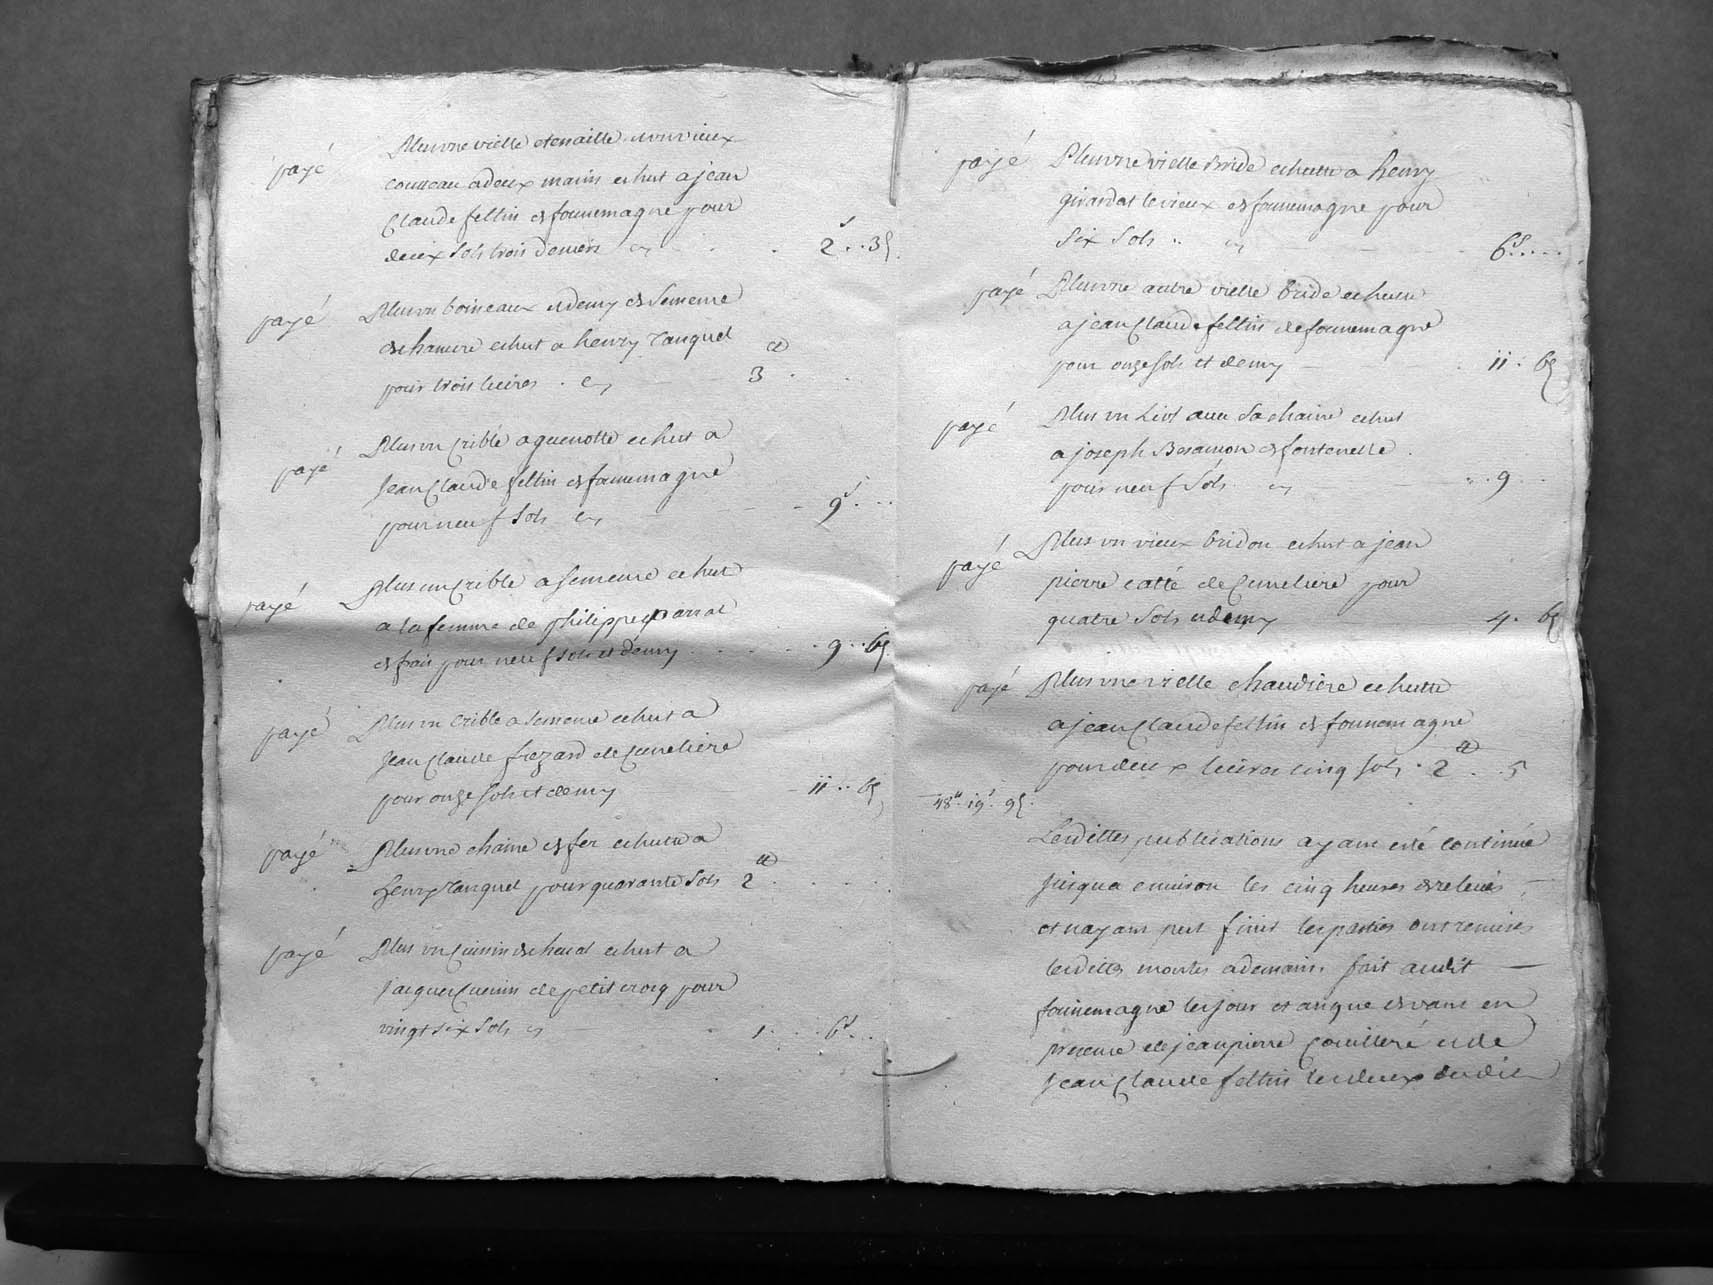 payé Plus une vielle etenaille et un vieux
couteau a deux mains echut a jean
Claude feltin de founemagne pour
deux sols trois deniers cy 2s..3d.
payé Plus un boiseaux et demy de semence
de chanvre echut a henry tanquel
pour trois livres . cy 3#
payé Plus un Crible a quenotte echut a
Jean Claude feltin de founemagne
pour neuf sols cy 9s...
payé Plus un Crible a semence echut
a la femme de philippe parrat
de frais pour neuf sols et demy 9..6d.
payé Plus un Crible a semence echut a
Jean Claude frezard de Cuneliere
pour onze sols et demy ii..6d
payé Plus une chaine de fer echutte a
henry tanquel pour quarante sols 2#
payé Plus un Cuissin de cheval echut a
Jacque Cuenin de petit crocq pour
vingt six sols cy 1...6s..
payé Plus une vielle bride echutte a henry
girardat le vieux de founemagne pour
six sols .. cy 6s....
payé Plus une autre vielle bride echutte
a jean Claude feltin de founemagne
pour onze sols et demy ii.6d
payé Plus un Licol avec sa chaine echut
a joseph Besancon de fontenelle .
pour neuf sols cy 9
payé Plus un vieux bridon echut a jean
pierre catté de Cuneliere pour
quatre sols et demy 4.6d
payé Plus une vielle chaudiere echutte
a jean Claude feltin de founemagne
pour deux livres cinq sols . 2#..5
48#.19s.9d.
Lesdittes publications ayant esté continué
jusqua environ les cinq heures de relevés
et nayant put finir les parties ont remises
lesdittes montes a demain. fait audit
founemagne les jour et an que devant en
presence de jean pierre Couilleré et de
Jean Claude feltin les deux dudit